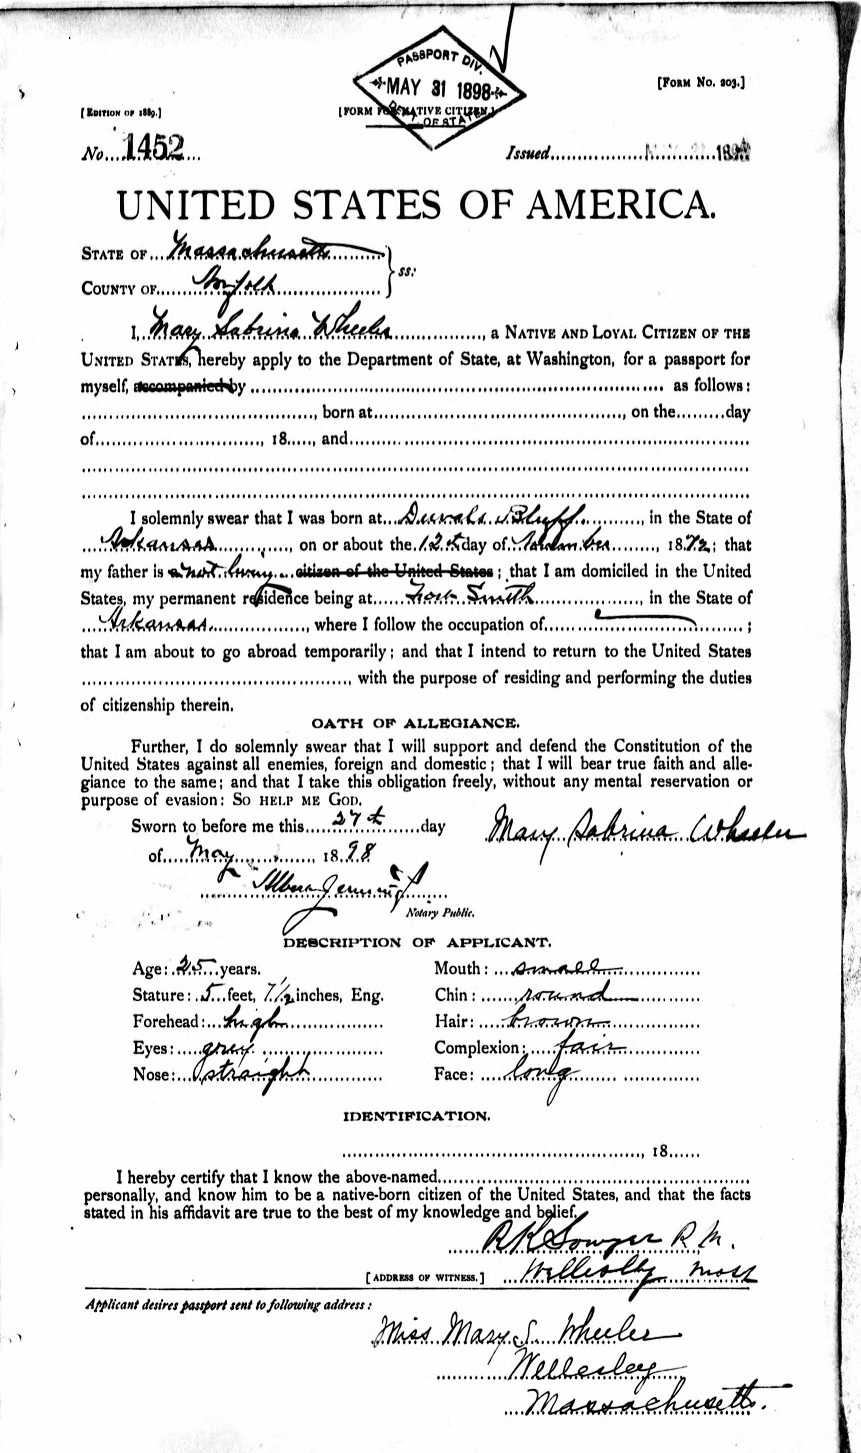 PASSPORT DIV.
MAY 31 1898
DEPT OF STATE
[FORM NO. 203.]
[EDITION OF 1889.]
[FORM FOR NATIVE CITIZEN.]
No. 1452
Issued 189
UNITED STATES OF AMERICA.
STATE OF Massachusetts
ss:
COUNTY OF Norfolk
I, Mary Sabrina Wheeler, a NATIVE AND LOYAL CITIZEN OF THE
UNITED STATES, hereby apply to the Department of State, at Washington, for a passport for
myself, accompanied by as follows:
, born at , on the day
of , 18 , and
I solemnly swear that I was born at Duvals Bluff, in the State of
Arkansas, on or about the 12th day of November, 1872; that
my father is a not living citizen of the United States; that I am domiciled in the United
States, my permanent residence being at Fort Smith, in the State of
Arkansas, where I follow the occupation of ;
that I am about to go abroad temporarily; and that I intend to return to the United States
, with the purpose of residing and performing the duties
of citizenship therein.
OATH OF ALLEGIANCE.
Further, I do solemnly swear that I will support and defend the Constitution of the
United States against all enemies, foreign and domestic; that I will bear true faith and alle-
giance to the same; and that I take this obligation freely, without any mental reservation or
purpose of evasion: SO HELP ME GOD.
Sworn to before me this 27th day
Mary Sabrina Wheeler
of May, 1898
Jennings
Notary Public.
DESCRIPTION OF APPLICANT.
Age: 25 years.
Mouth: small
Stature: 5 feet, 7 1/2 inches, Eng.
Chin: round
Forehead: high
Hair: brown
Eyes: grey
Complexion: fair
Nose: straight
Face: long
IDENTIFICATION.
, 18
I hereby certify that I know the above-named
personally, and know him to be a native-born citizen of the United States, and that the facts
stated in his affidavit are true to the best of my knowledge and belief.
R K Sawyer P. M.
[ADDRESS OF WITNESS.] Wellesley Mass
Applicant desires passport sent to following address:
Miss Mary S. Wheeler
Wellesley
Massachusetts.